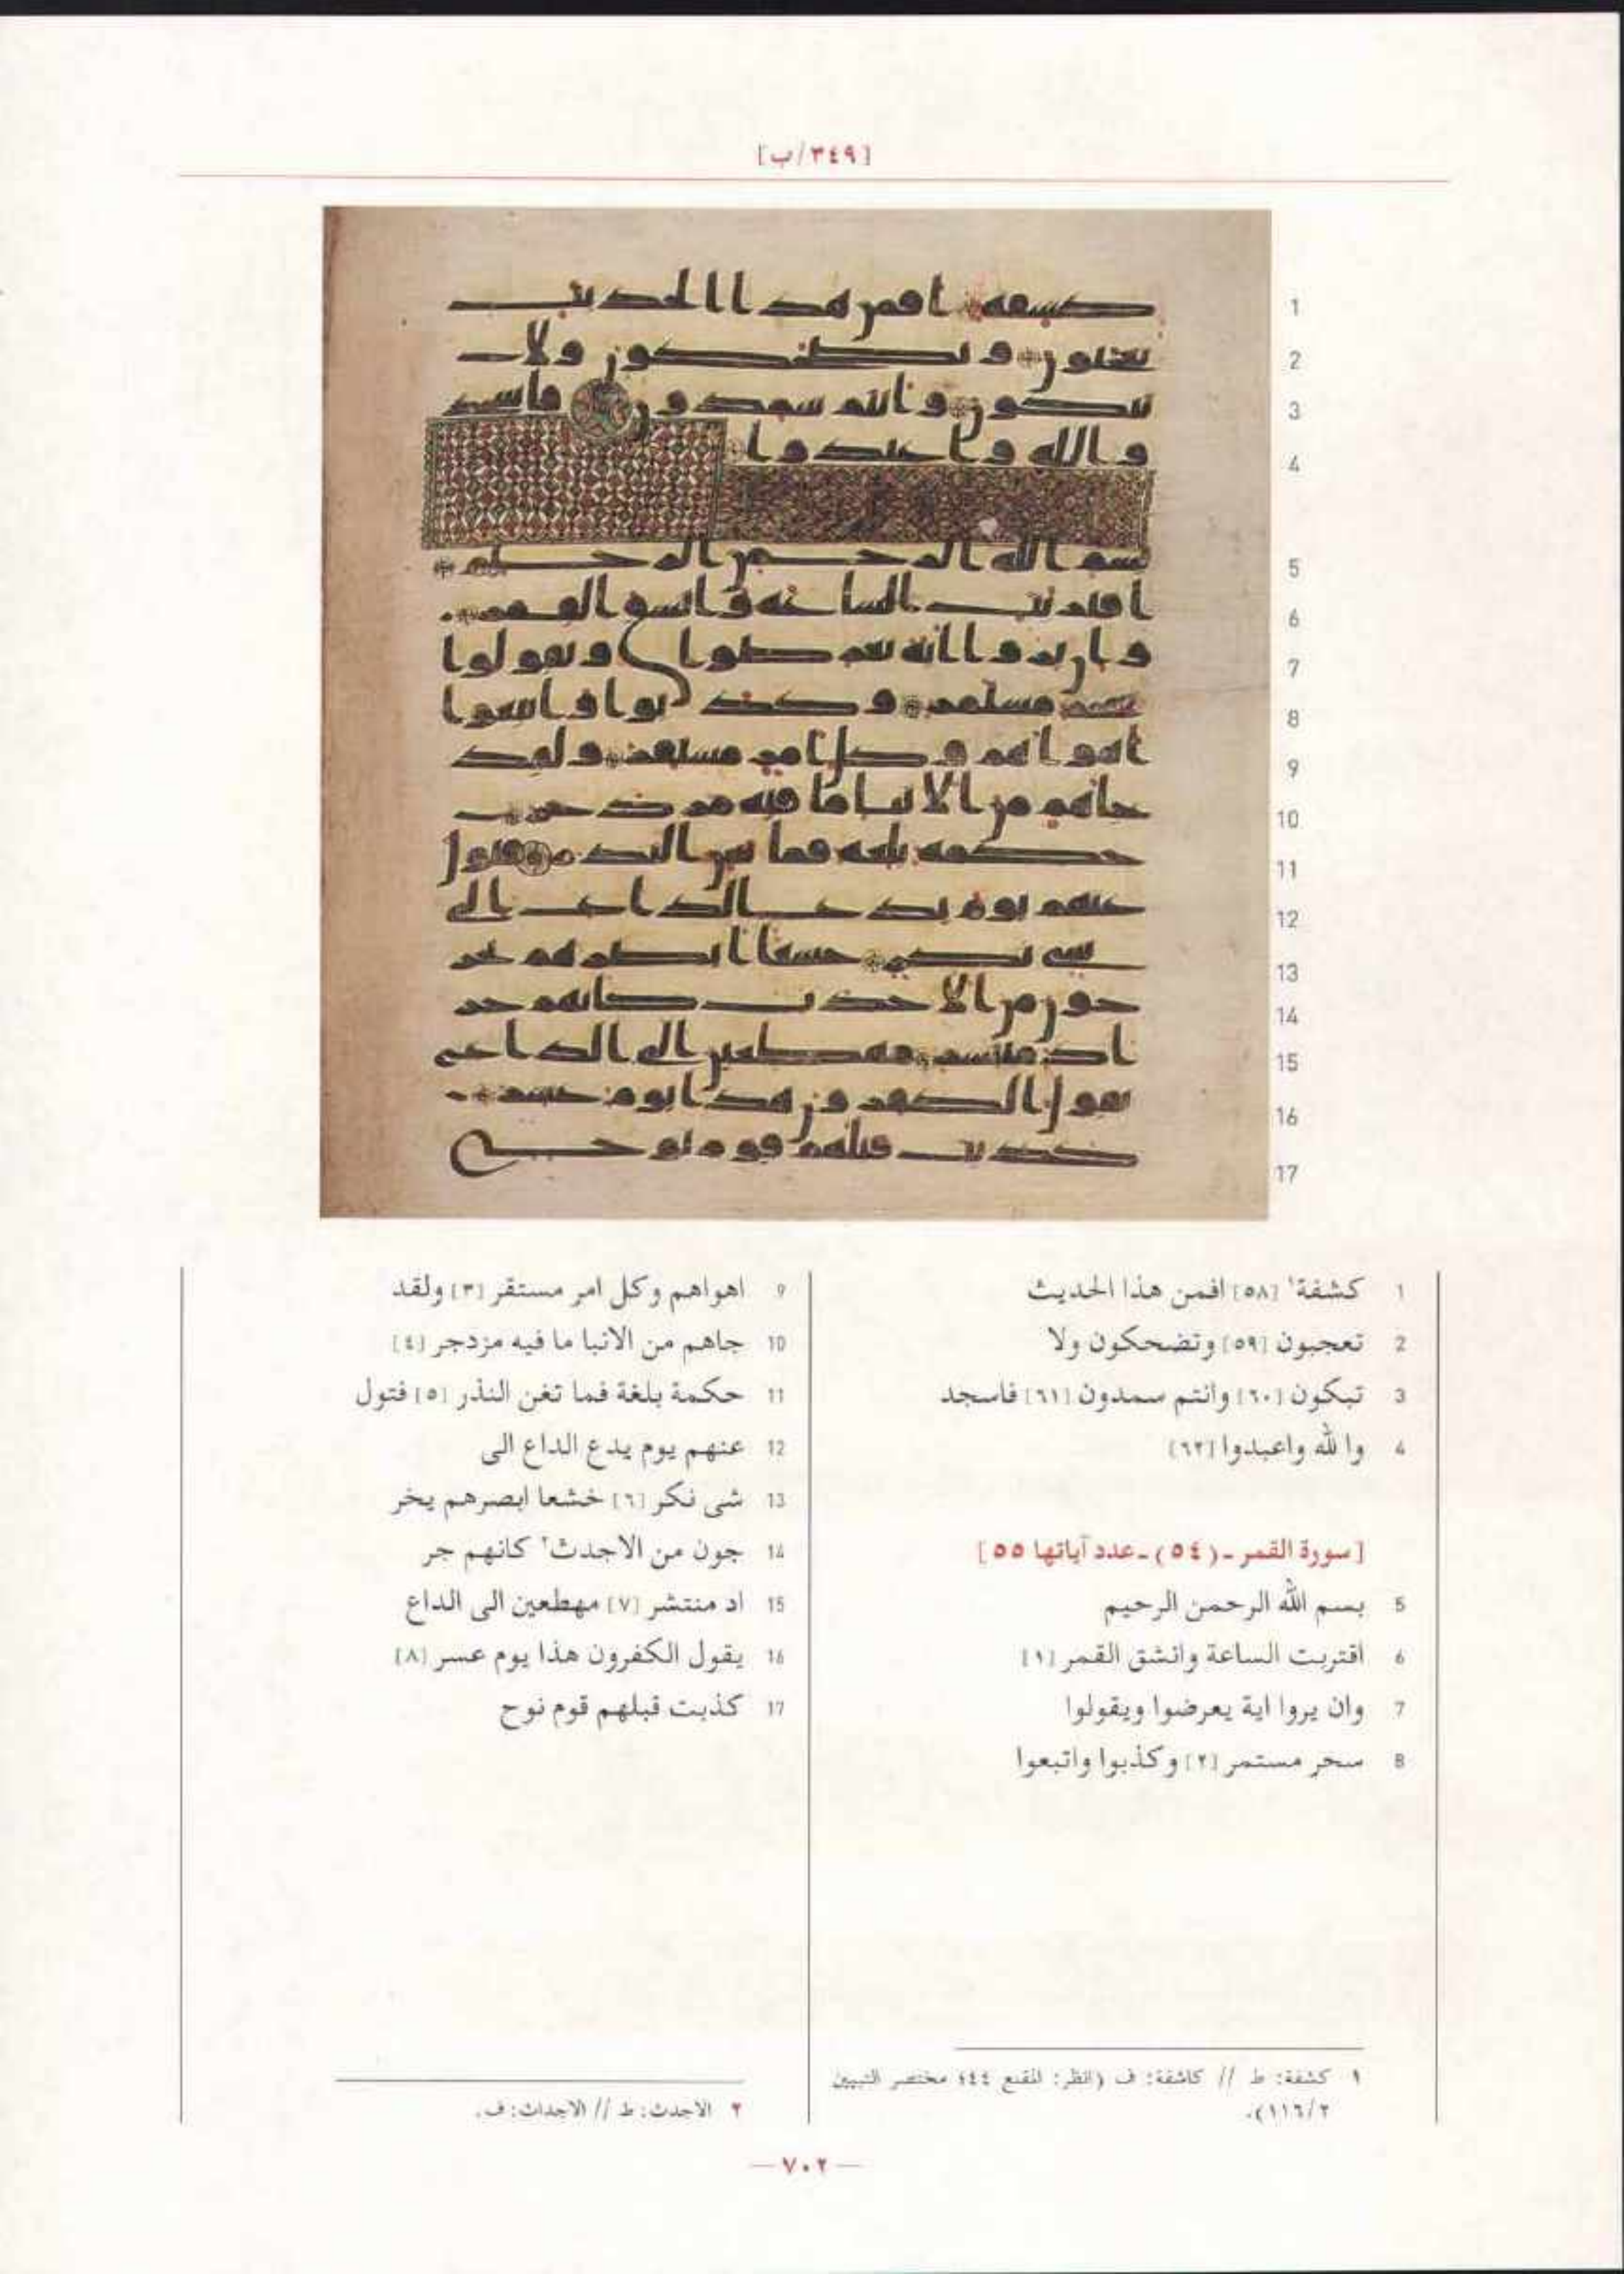 [٣٤٩/ب]
1 كشفة١ [٥٨] افمن هذا الحديث
2 تعجبون [٥٩] وتضحكون ولا
3 تبكون [٦٠] وانتم سمدون [٦١] فاسجد
4 وا لله واعبدوا [٦٢]
[سورة القمر ـ (٥٤) ـ عدد آياتها ٥٥]
5 بسم الله الرحمن الرحيم
6 اقتربت الساعة وانشق القمر [١]
7 وان يروا اية يعرضوا ويقولوا
8 سحر مستمر [٢] وكذبوا واتبعوا
9 اهواهم وكل امر مستقر [٣] ولقد
10 جاهم من الانبا ما فيه مزدجر [٤]
11 حكمة بلغة فما تغن النذر [٥] فتول
12 عنهم يوم يدع الداع الى
13 شى نكر [٦] خشعا ابصرهم يخر
14 جون من الاجدث٢ كانهم جر
15 اد منتشر [٧] مهطعين الى الداع
16 يقول الكفرون هذا يوم عسر [٨]
17 كذبت قبلهم قوم نوح
١ كشفة: ط // كاشفة: ف (انظر: المقنع ٤٤؛ مختصر التبيين
٢/١١٦).
٢ الاجدث: ط // الاجداث: ف.
— ٧٠٢ —